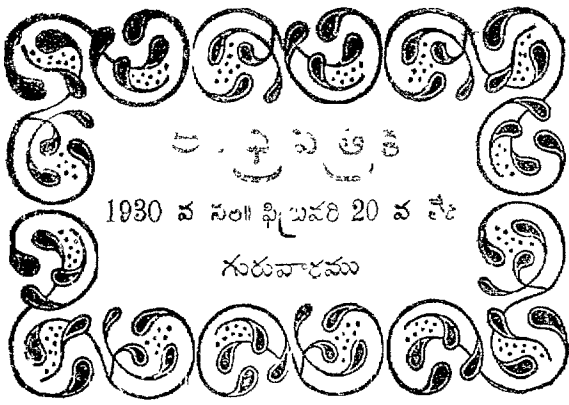 ఆంధ్రపత్రిక
1930 వ సం॥ ఫిబ్రువరి 20 వ తేది
గురువారము